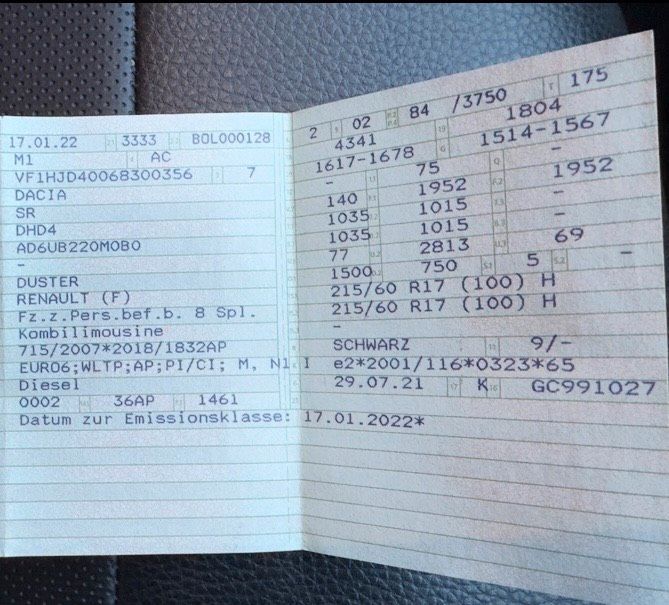 17.01.22 3333 BOL000128
M1 AC
VF1HJD40068300356 7
DACIA
SR
DHD4
AD6UB220M0B0
-
DUSTER
RENAULT (F)
Fz.z.Pers.bef.b. 8 Spl.
Kombilimousine
715/2007*2018/1832AP
EURO6;WLTP;AP;PI/CI; M, N1 I
Diesel
0002 36AP 1461
Datum zur Emissionsklasse: 17.01.2022*
2 02 84 /3750 175
4341 1804
1617-1678 1514-1567
- 75 -
140 1952 1952
1035 1015 -
1035 1015 -
77 2813 69
1500 750 5 -
215/60 R17 (100) H
215/60 R17 (100) H
-
SCHWARZ 9/-
e2*2001/116*0323*65
29.07.21 K GC991027